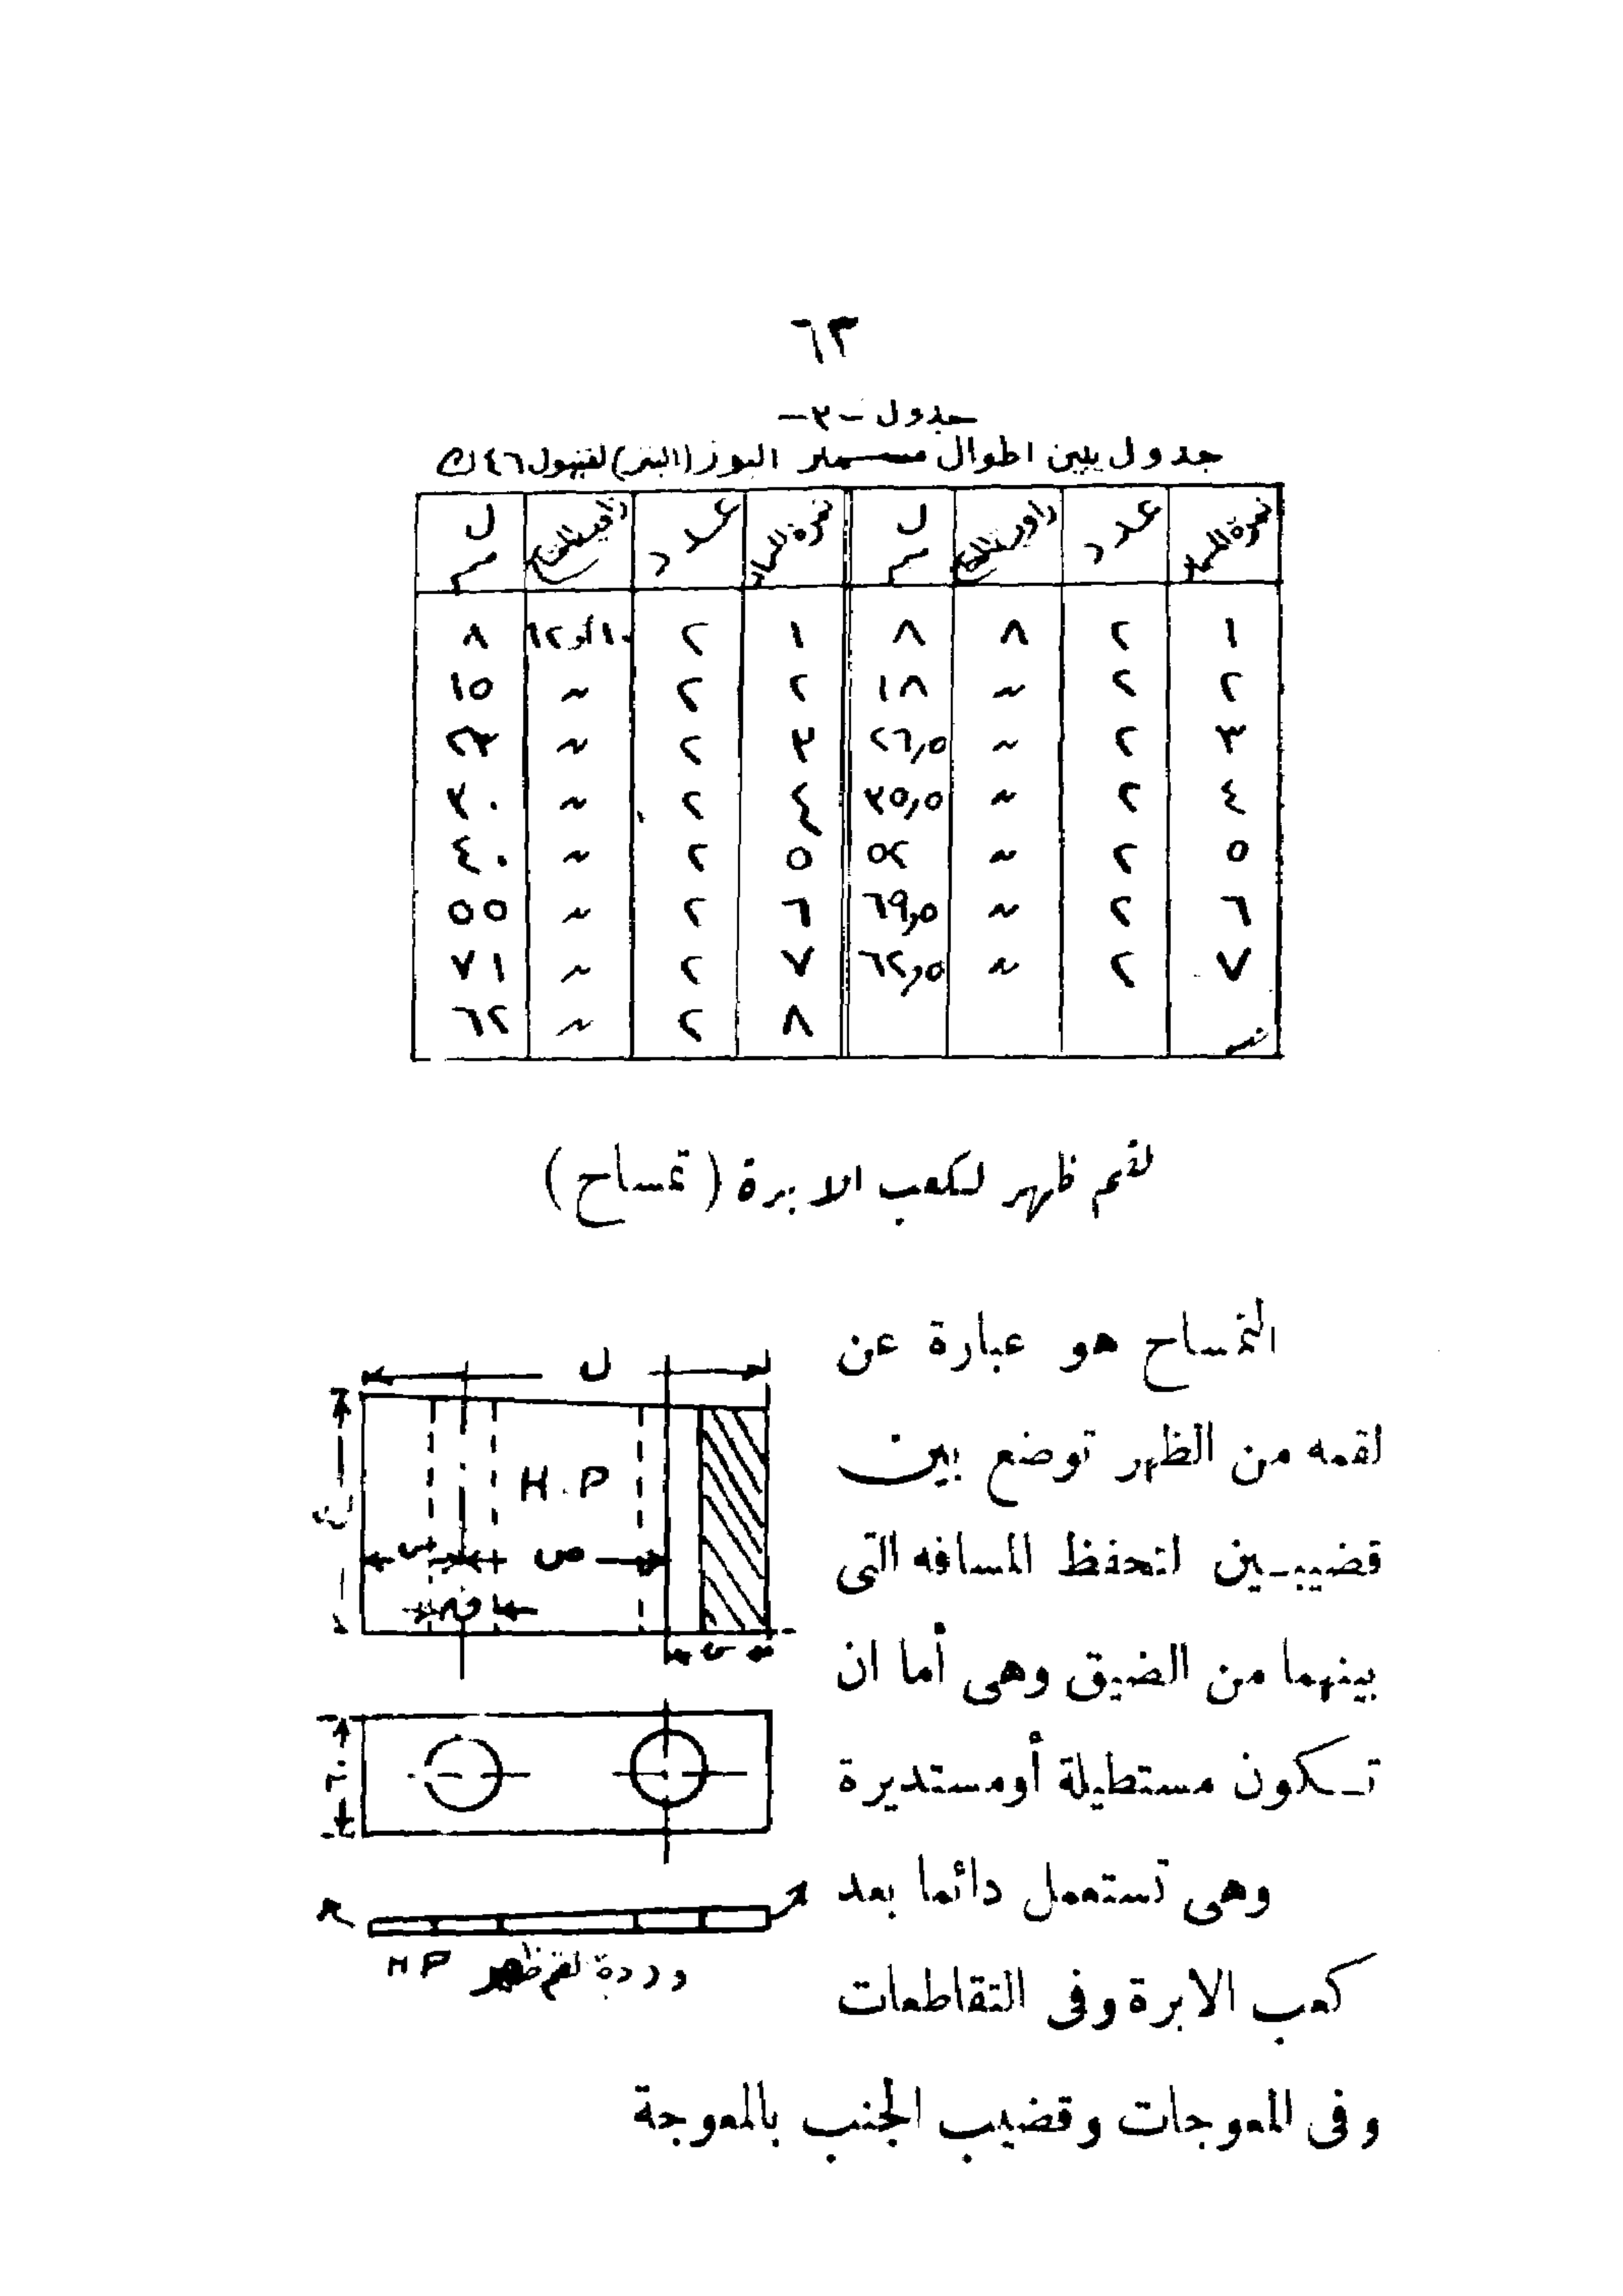 ٦٣
جدول -٣-
جدول يبين اطوال مسمار البوز (البنز) ٤٦ ك
نمرة المسمار عدد زاوية ل سم نمرة المسمار عدد زاوية ل سم
١ ٢ ٨ ٨ ١ ٢ ١٠ أو ١٢ ٨
٢ ٢ ~ ١٨ ٢ ٢ ~ ١٥
٣ ٢ ~ ٢٦٫٥ ٣ ٢ ~ ٢٣
٤ ٢ ~ ٣٥٫٥ ٤ ٢ ~ ٣٠
٥ ٢ ~ ٥٢ ٥ ٢ ~ ٤٠
٦ ٢ ~ ٦٩٫٥ ٦ ٢ ~ ٥٥
٧ ٢ ~ ٦٢٫٥ ٧ ٢ ~ ٧١
٨ ٢ ~ ٦٢
لقم ظهر لكعب الابرة (تمساح)
التمساح هو عبارة عن
لقمه من الظهر توضع بين
قضيبين لتحفظ المسافه التى
بينهما من الضيق وهى أما ان
تكون مستطيلة أومستديرة
وهى تستعمل دائما بعد
كعب الابرة وفى التقاطعات
وفى المعوجات وقضيب الجنب بالمعوجة
ل
H.P
س ص
س
وردة لقم ظهر HP